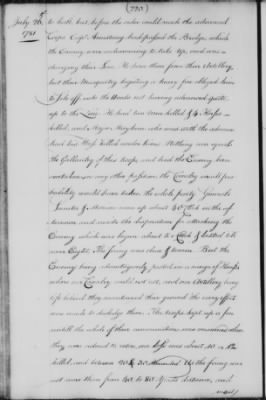 (220)
July 26th to both, but before the orders could reach the advanced
1781 Corps Capt. Armstrong had passed the Bridge, which
the Enemy were endeavouring to take up, and were
changing their Line. He drove them from their Artillery,
but their Musquetry keeping a heavy fire obliged him
to file off into the Woods not having advanced quite
up to the Line. He had two men killed & 4 Horses
killed, and Major who was with the advance
had his Horse killed under him. Nothing can equal
the Gallantry of this troop, and had the Enemy been
in any other position the Cavalry would
have taken the whole party. Generals
Sumter & Marion came up about 4 oClock on the
and made the disposition for attacking the
Enemy which was began about 5 oClock & lasted till
near Eight. The firing was close & warm. But the
Enemy being advantageously posted in a range of Houses
where our Cavalry could not act, and our Artillery being
left behind they maintained their ground tho every effort
was made to dislodge them. The troops kept up a fire
untill the whole of their ammunition was when
they was ordered to retire, our loss was about 10
killed, and between 20 & 30 Wounded. the firing was
not more than from 40 to 80 yards distance, and